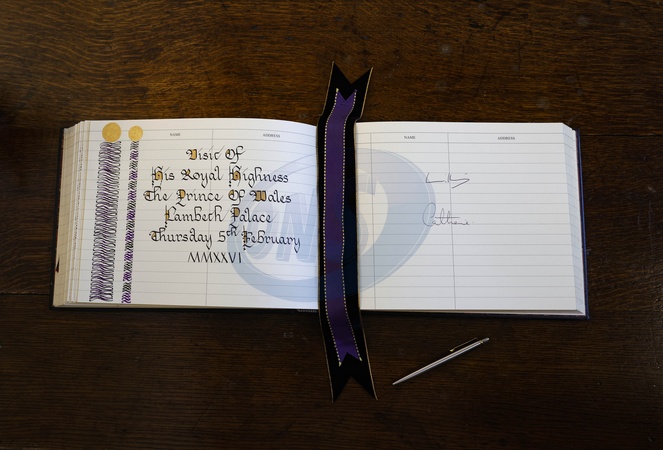 NAME ADDRESS
Visit Of
His Royal Highness
The Prince Of Wales
Lambeth Palace
Thursday 5th February
MMXXVI
NAME ADDRESS
Catherine